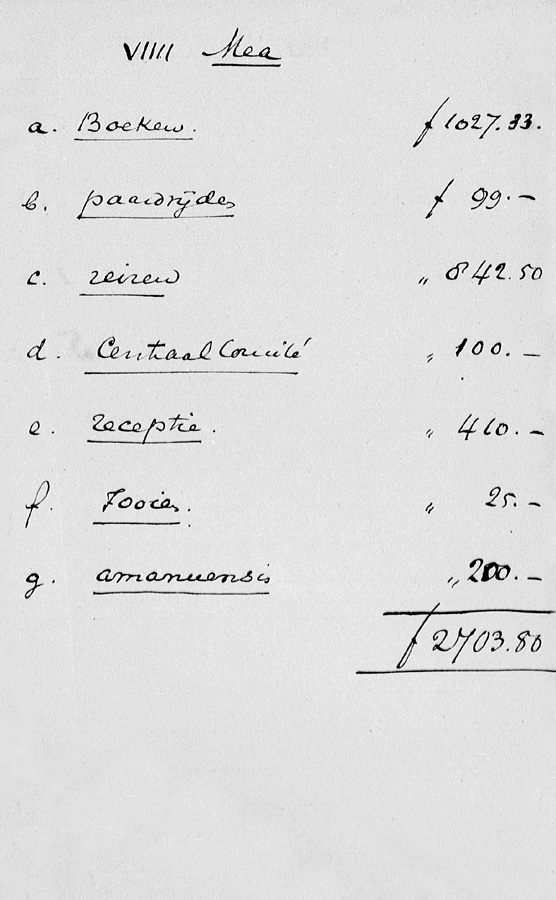 VIIII Mea
a. Boeken. f 1027.33.
b. paardrijden f 99.—
c. reizen „ 842.50
d. Centraal Comité „ 100.—
e. receptie. „ 410.—
f. Fooien. „ 25.—
g. amanuensis „ 200.—
f 2703.80